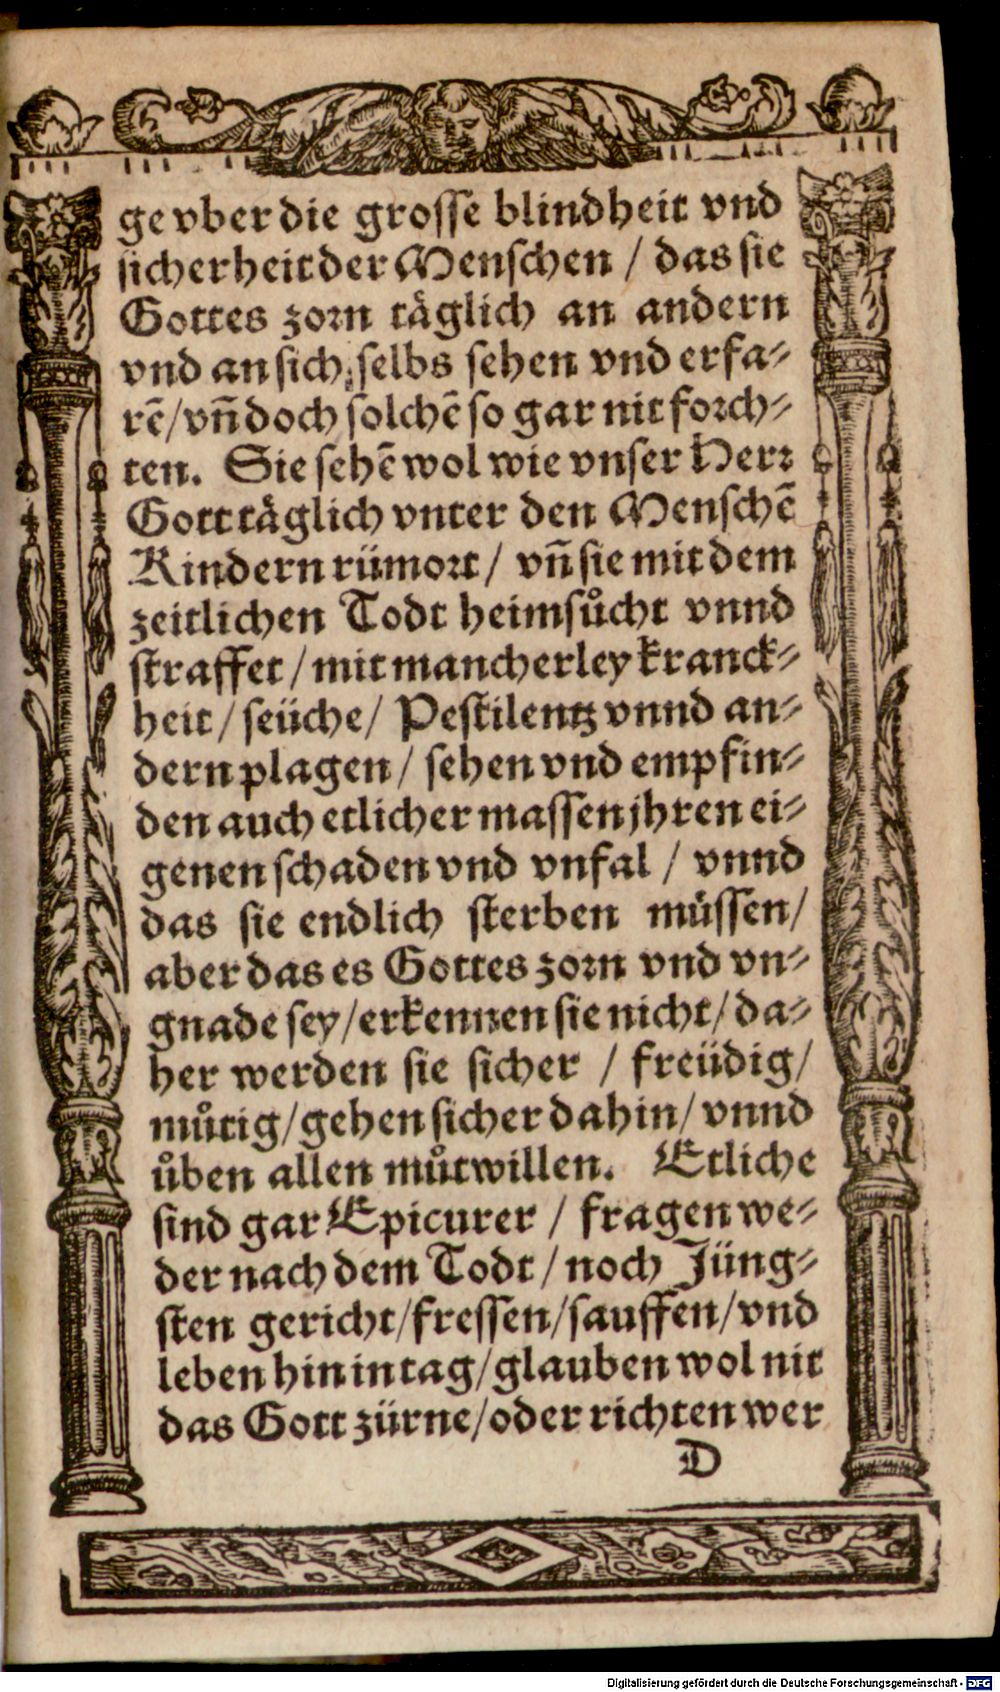 ge vber die grosse blindheit vnd
sicherheit der Menschen / das sie
Gottes zorn täglich an andern
vnd an sich selbs sehen vnd erfa⸗
rē/ vn̄ doch solchē so gar nit forch⸗
ten. Sie sehē wol wie vnser Herr
Gott täglich vnter den Menschē
Kindern rümort / vn̄ sie mit dem
zeitlichen Todt heimsůcht vnnd
straffet / mit mancherley kranck⸗
heit / seüche / Pestilentz vnnd an⸗
dern plagen / sehen vnd empfin⸗
den auch etlicher massen jhren ei⸗
genen schaden vnd vnfal / vnnd
das sie endlich sterben müssen/
aber das es Gottes zorn vnd vn⸗
gnade sey / erkennen sie nicht / da⸗
her werden sie sicher / freüdig /
můtig / gehen sicher dahin / vnnd
üben allen můtwillen. Etliche
sind gar Epicurer / fragen we⸗
der nach dem Todt / noch Jüng⸗
sten gericht / fressen / sauffen / vnd
leben hin in tag / glauben wol nit
das Gott zürne / oder richten wer
D
Digitalisierung gefördert durch die Deutsche Forschungsgemeinschaft - DFG